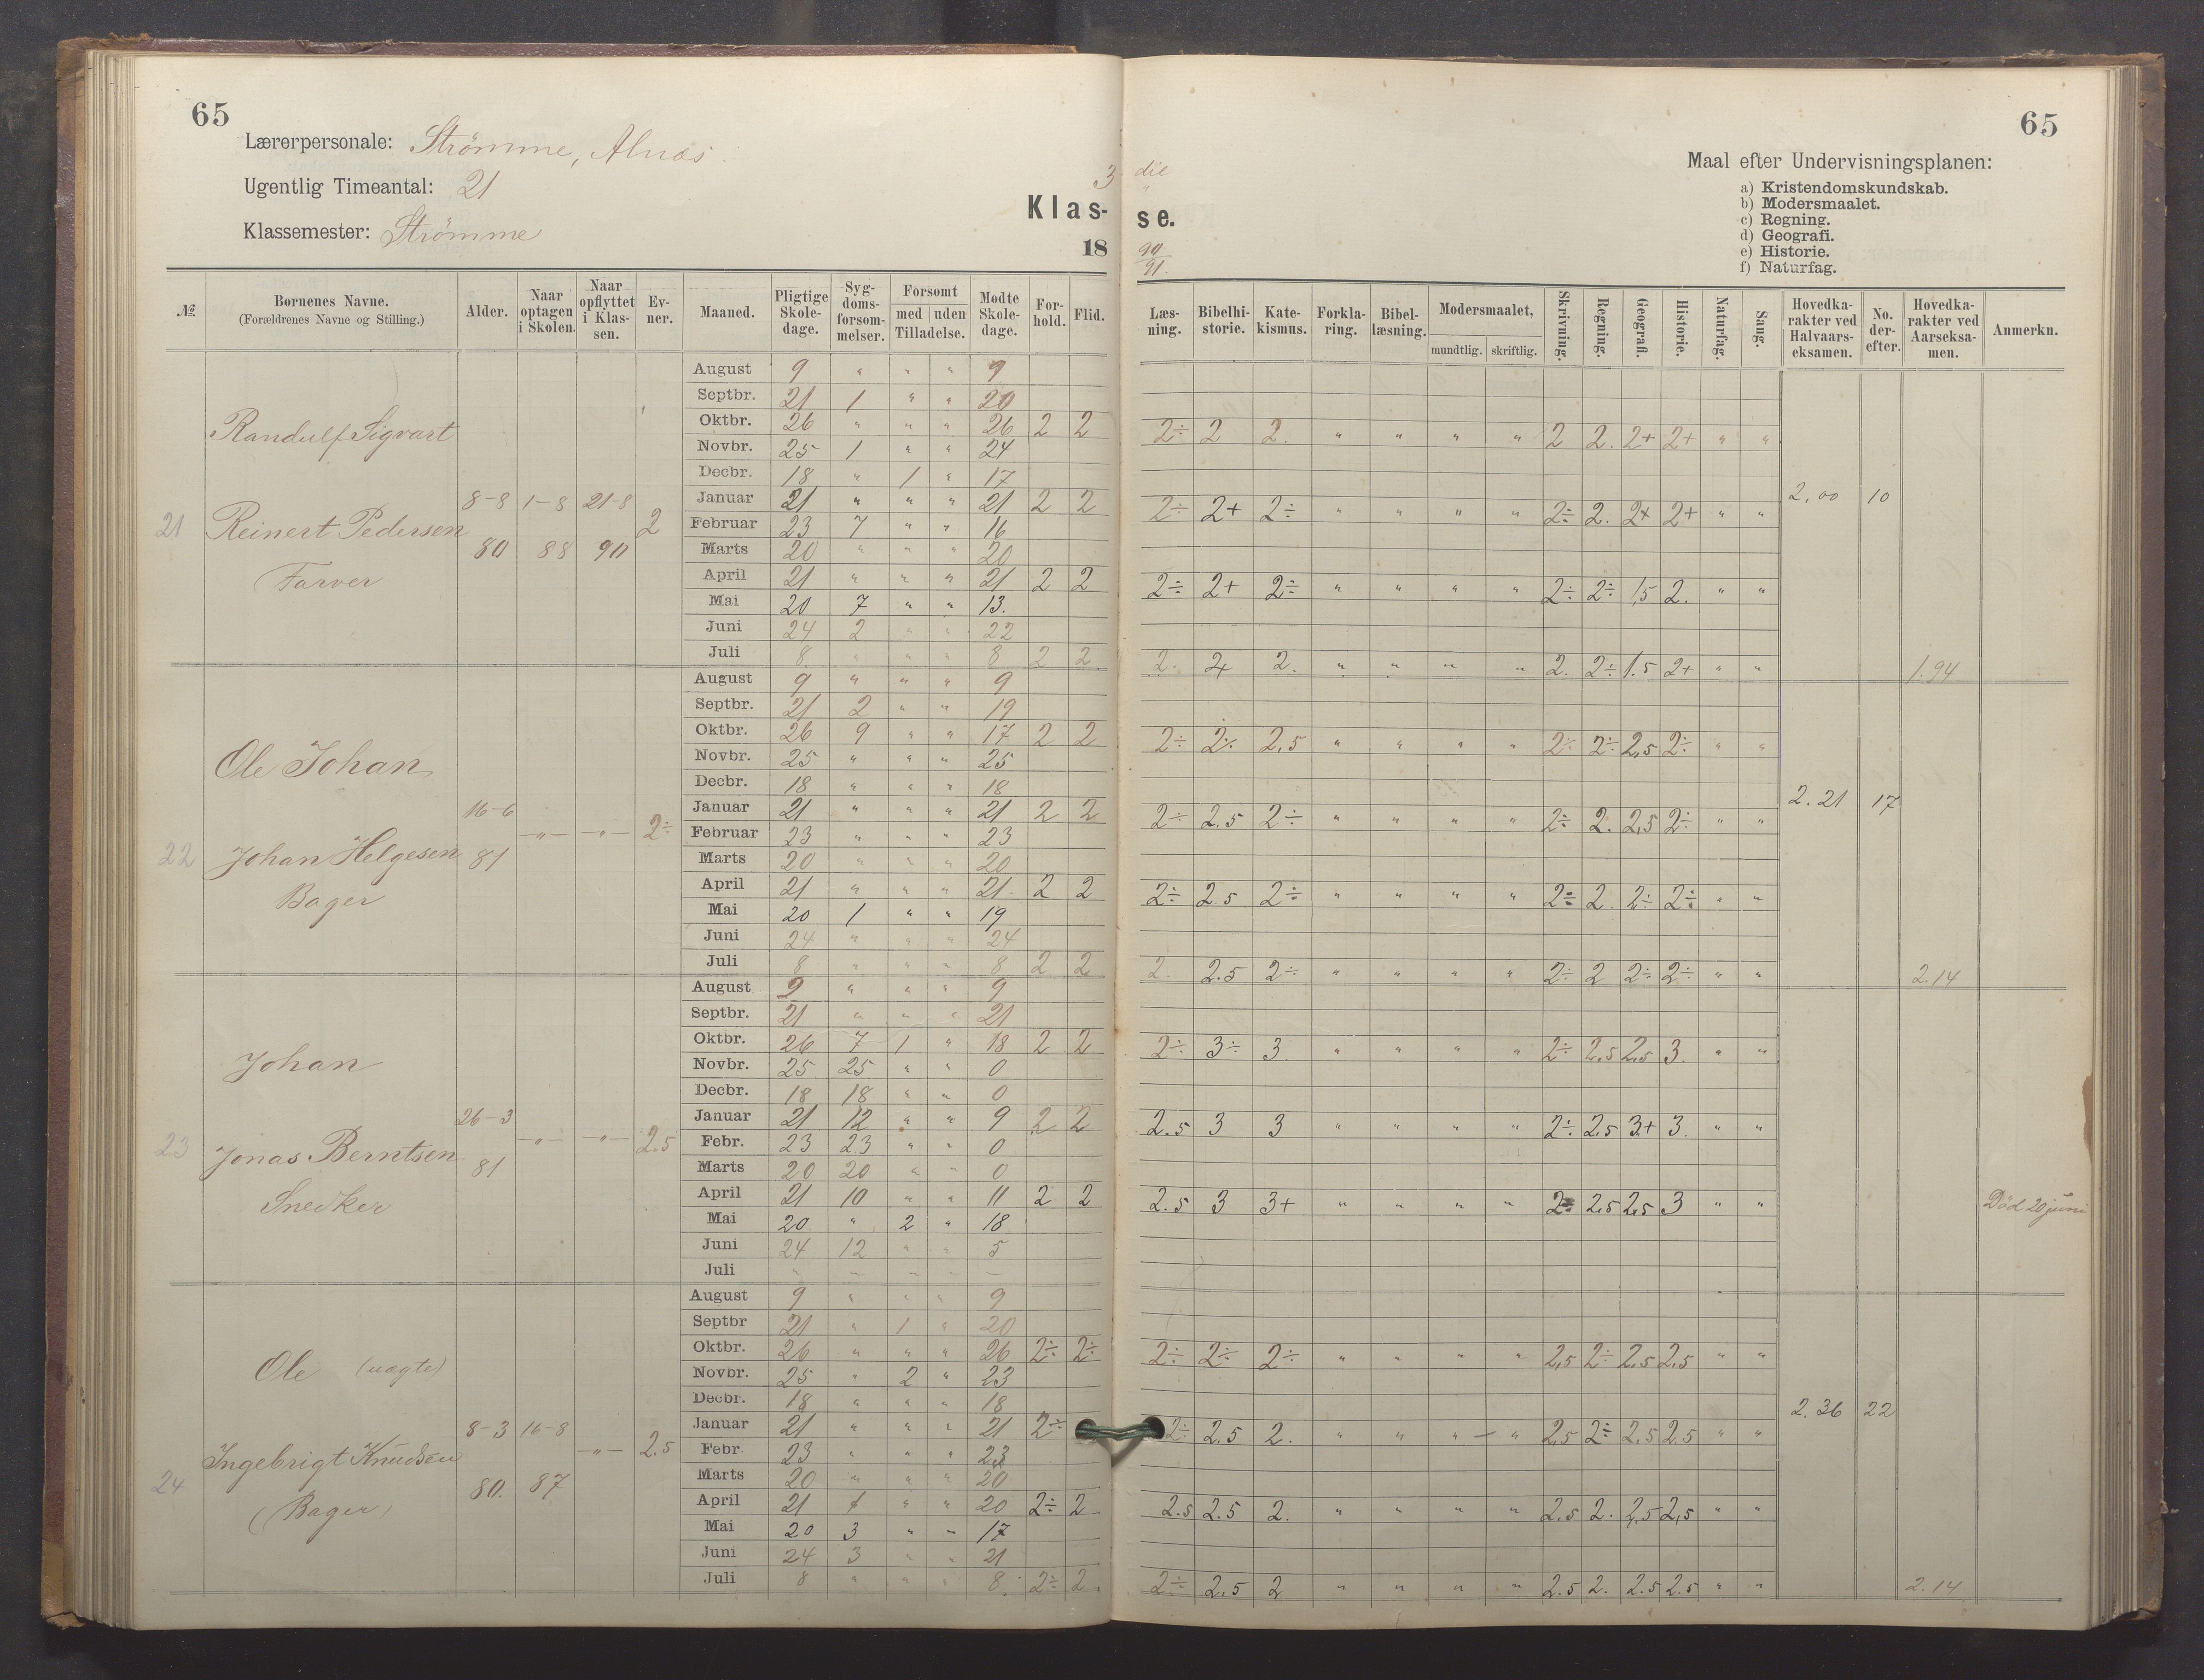 65
Lærerpersonale: Strömme, Alnæs.
Ugentlig Timeantal: 21
Klassemester: Strömme
3 die
Klas- se.
18 90/91.
65
Maal efter Undervisningsplanen:
a) Kristendomskundskab.
b) Modersmaalet.
c) Regning.
d) Geografi.
e) Historie.
f) Naturfag.
№ Børnenes Navne. (Forældrenes Navne og Stilling.) Alder. Naar optagen i Skolen. Naar opflyttet i Klassen. Evner. Maaned. Pligtige Skoledage. Sygdomsforsømmelser. Forsømt med uden Tilladelse. Mødte Skoledage. Forhold. Flid. Læsning. Bibelhistorie. Katekismus. Forklaring. Bibellæsning. Modersmaalet, mundtlig. skriftlig. Skrivning. Regning. Geografi. Historie. Naturfag. Sang. Hovedkarakter ved Halvaarseksamen. No. derefter. Hovedkarakter ved Aarseksamen. Anmerkn.
21 Randulf Sigvart
Reinert Pedersen
Farver
8-8 80 1-8 88 21-8 90 2
August 9 " " " 9
Septbr. 21 1 " " 20
Oktbr. 26 " " " 26 2 2 2÷ 2 2. " " " " 2 2. 2+ 2+ " "
Novbr. 25 1 " " 24
Decbr. 18 " 1 " 17
Januar 21 " " " 21 2 2 2÷ 2+ 2÷ " " " " 2÷ 2. 2+ 2+ " " 2,00 10
Februar 23 7 " " 16
Marts 20 " " " 20
April 21 " " " 21 2 2 2÷ 2+ 2÷ " " " " 2÷ 2÷ 1,5 2. " "
Mai 20 7 " " 13.
Juni 24 2 " " 22
Juli 8 " " " 8 2 2 2. 2+ 2. " " " " 2. 2÷ 1.5 2+ " " 1.94
22 Ole Johan
Johan Helgesen
Bager
16-6 81 -"- -"- 2÷
August 9 " " " 9
Septbr. 21 2 " " 19
Oktbr. 26 9 " " 17 2 2 2÷ 2÷ 2,5 " " " " 2÷ 2÷ 2,5 2÷ " "
Novbr. 25 " " " 25
Decbr. 18 " " " 18
Januar 21 " " " 21 2 2 2÷ 2.5 2÷ " " " " 2÷ 2. 2,5 2÷ " " 2.21 17
Februar 23 " " " 23
Marts 20 " " " 20
April 21 " " " 21. 2 2 2÷ 2.5 2÷ " " " " 2÷ 2. 2÷ 2÷ " "
Mai 20 1 " " 19
Juni 24 " " " 24
Juli 8 " " " 8 2 2 2. 2.5 2÷ " " " " 2÷ 2 2÷ 2÷ " " 2.14
23 Johan
Jonas Berntsen
Snedker
26-3 81 -"- -"- 2.5
August 9 " " " 9
Septbr. 21 " " " 21
Oktbr. 26 7 1 " 18 2 2 2÷ 3÷ 3. " " " " 2÷ 2,5 2,5 3. " "
Novbr. 25 25 " " 0
Decbr. 18 18 " " 0
Januar 21 12 " " 9 2 2 2.5 3 3 " " " " 2÷ 2,5 3+ 3. " "
Febr. 23 23 " " 0
Marts 20 20 " " 0
April 21 10 " " 11 2 2 2.5 3 3+ " " " " 2÷ 2,5 2,5 3 " " Död 20 juni
Mai 20 " 2 " 18
Juni 24 12 " " 5
Juli – – – – –
24 Ole (uægte)
Ingebrigt Knudsen
(Bager)
8-3 80. 16-8 87 -"- 2.5
August 9 " " " 9
Septbr 21 " 1 " 20
Oktbr. 26 " " " 26 2÷ 2÷ 2÷ 2÷ 2÷ " " " " 2,5 2÷ 2,5 2,5 " "
Novbr. 25 " 2 " 23
Decbr. 18 " " " 18
Januar 21 " " " 21 2÷ 2÷ 2.5 2. " " " – " 2,5 2÷ 2.5 2.5 " " 2.36 22
Febr. 23 " " " 23
Marts 20 " " " 20
April 21 1 " " 20 2÷ 2 2.5 2.5 2. " " " " 2.5 2. 2,5 2,5 " "
Mai 20 3 " – 17
Juni 24 3 " " 21
Juli 8 " " " 8. 2÷ 2. 2÷ 2.5 2 " " " " 2.5 2. 2.5 2.5 " " 2.14